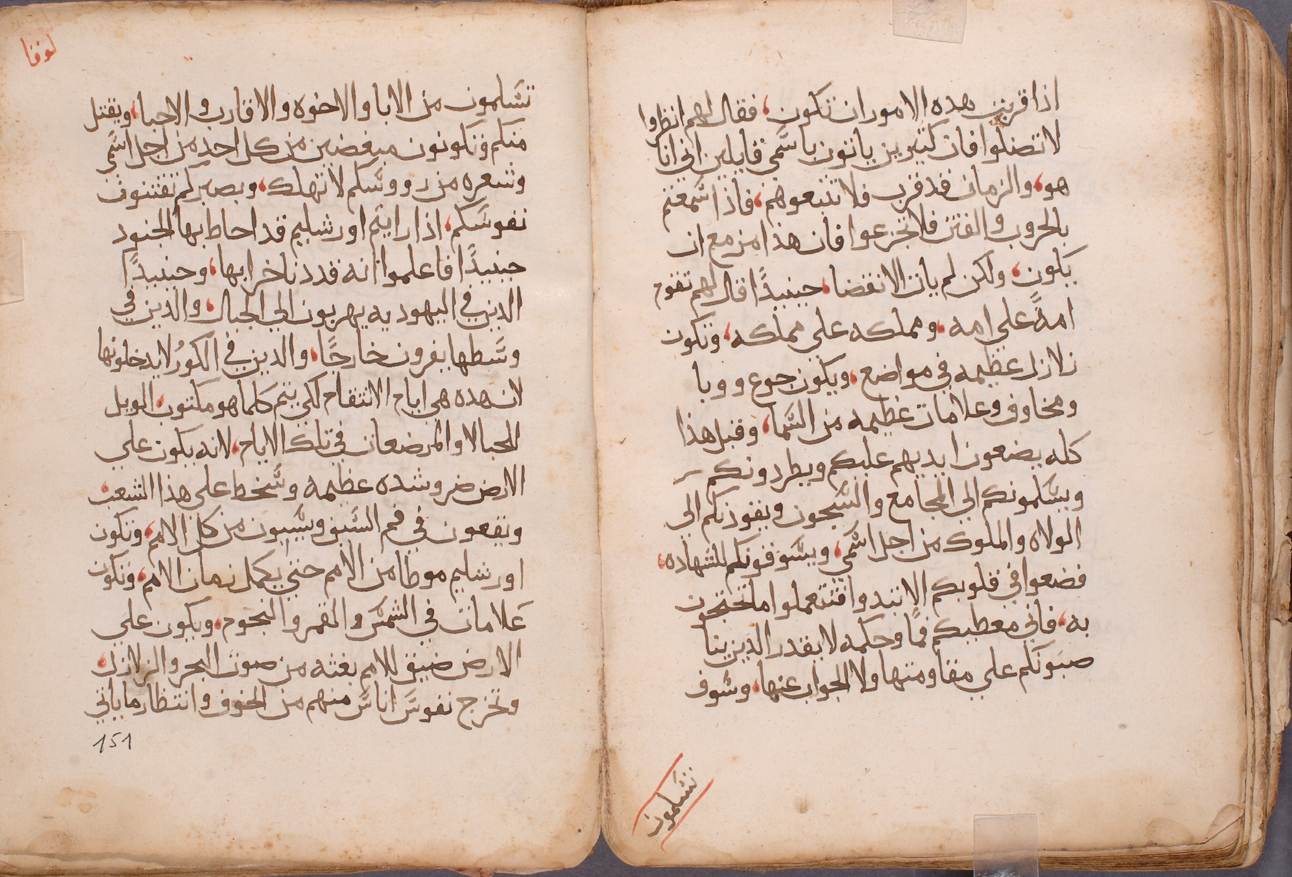 اذا قربن هده الامور ان تكون، فقال لهم انظروا
لا تضلوا فان كثيرين ياتون باسمي قايلين اني انا
هو، والزمان قد قرب فلا تتبعوهم، فاذا سمعتم
بالحروب والفتن فلا تجزعوا فان هذا مزمع ان
يكون، ولكن لم يات الانقضا، حينيذًا قال لهم تقوم
امةً على امه، ومملكه على مملكه، وتكون
زلازل عظيمه في مواضع، ويكون جوع ووبا
ومخاوف وعلامات عظيمه من السما، وقبل هذا
كله يضعون ايديهم عليكم ويطردونكم
ويسلمونكم الى المجامع والسجون ويقودنكم الى
الولاه والملوك من اجل اسمي، ويسوقونكم للشهاده،
فضعوا في قلوبكم الا تتدوا فتتعملوا ما تحتجون
به، فاني معطيكم فمًا وحكمه لا يقدر الدين ينا
صبونكم على مقاومتها ولا الجواب عنها، وسوف
تسلمون
لوقا
تسلمون من الابا والاخوه والاقارب والاحبا، ويقتل
منكم وتكونون مبغضين من كل احدٍ من اجل اسمي
وشعره من رووسكم لا تهلك، وبصبركم تقتنون
نفوسكم، اذا رايتم اورشليم قد احاط بها الجنود
حينيذًا فاعلموا انه قد دنا خرابها، وحينيذًا
الدين في اليهوديه يهربون الى الجبال، والدين في
وسطها يفرون خارجًا، والدين في الكورُ لا يدخلونها
لان هده هي ايام الانتقام لكي يتم كلما هو مكتوب، الويل
للحبالا والمرضعات في تلك الايام، لانه يكون على
الارض ضر وشده عظيمه وسخط على هذا الشعب،
ويقعون في فم السيف ويسبون من كل الامم، وتكون
اورشليم موطا من الامم حتي يكمل زمان الامم، وتكون
علامات في الشمس والقمر والنجوم، ويكون على
الارض ضيق للامم بغته من صوت البحر والزلازل،
وتخرج نفوس اناس منهم من الخوف وانتظار ما ياتي
151